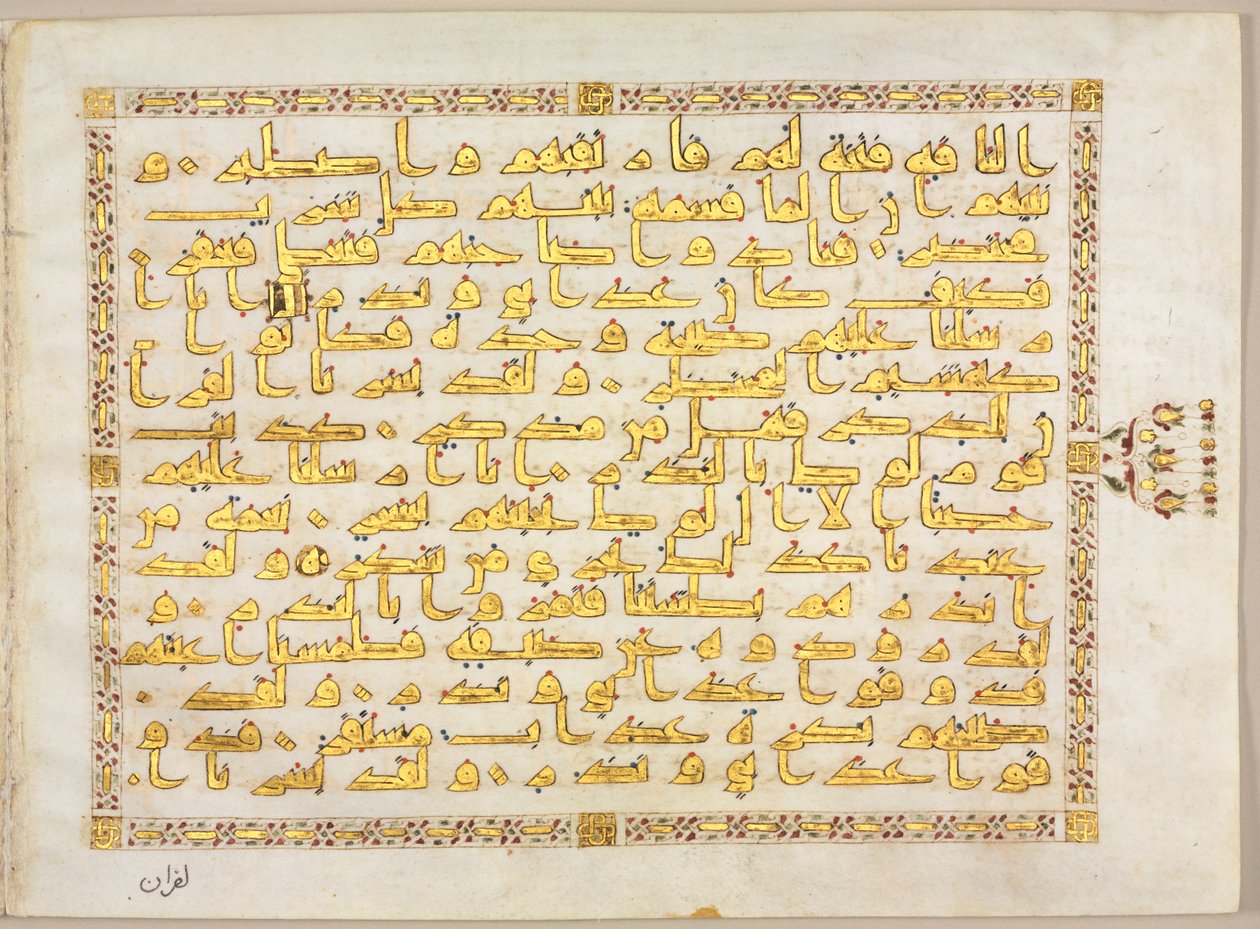 ا الناقة فتنة لهم فارتقبهم واصطبر و
نبئهم ان الما قسمة بينهم كل شرب
محتضر فنادوا صاحبهم فتعاطى فعقر
فكيف كان عذابي ونذر انا ا
رسلنا عليهم صيحة وحدة فكانوا
كهشيم المحتظر ولقد يسرنا القرا
ن للذكر فهل من مدكر كذبت
قوم لوط بالنذر انا ارسلنا عليهم
حاصبا الا ال لوط نجينهم بسحر نعمة من
عندنا كذلك نجزي من شكر ولقد
انذرهم بطشتنا فتماروا بالنذر و
لقد رودوه عن ضيفه فطمسنا اعينهم
فذوقوا عذابي ونذر ولقد
صبحهم بكرة عذاب مستقر فذو
قوا عذابي ونذر ولقد يسرنا ا
لقران